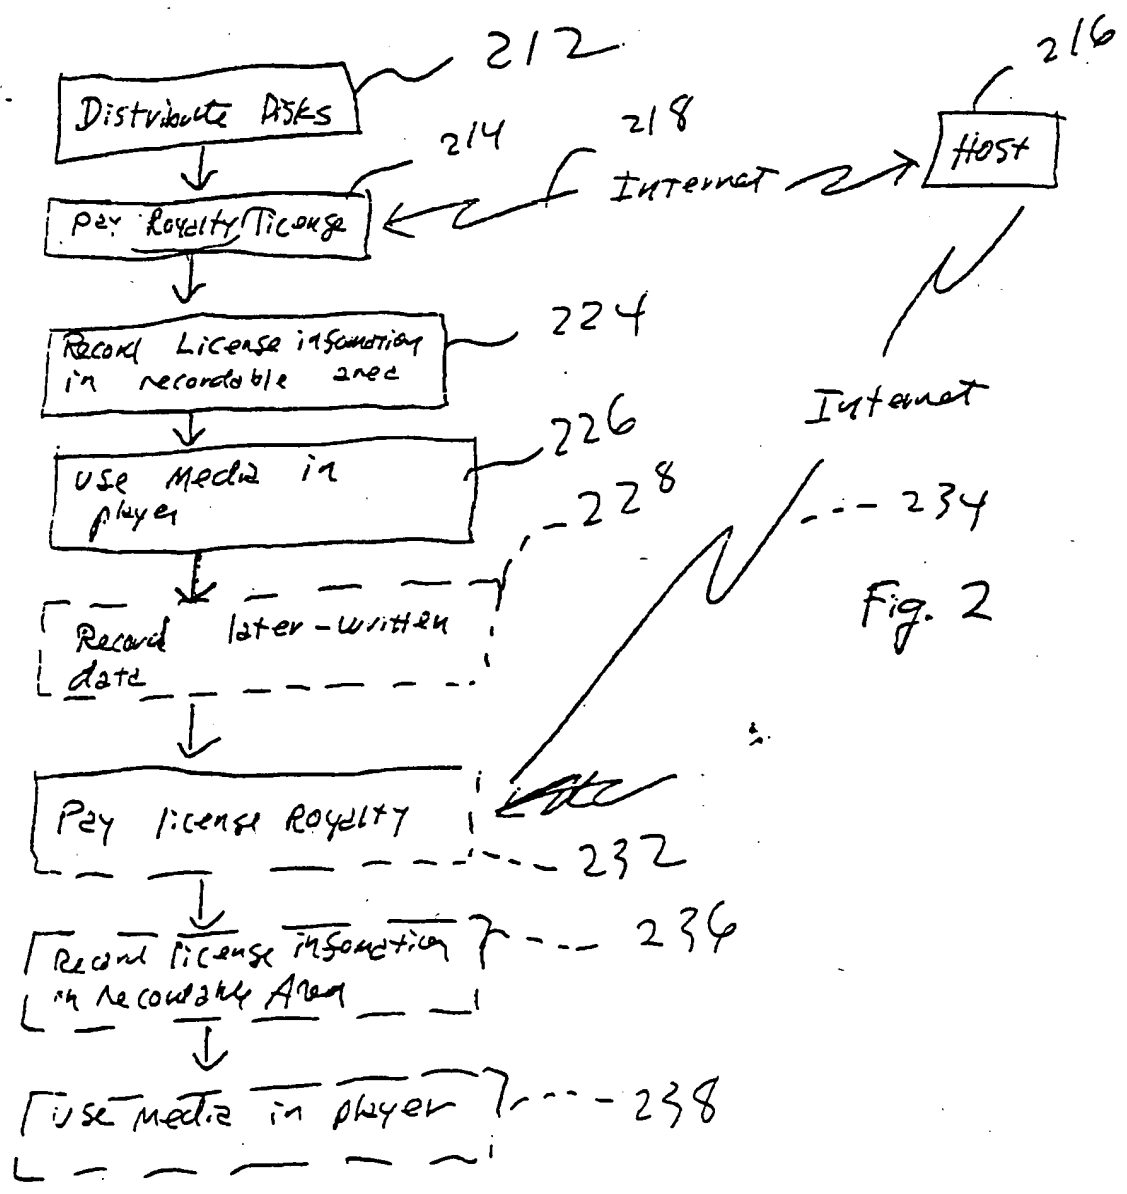 212
Distribute Disks
216
214
218
Host
Internet
Pay Royalty/license
224
Record License information
in recordable area
Internet
226
Use Media in
player
228
234
Fig. 2
Record later-written
data
Pay license Royalty
232
236
Record license information
in recordable Area
Use media in player
238